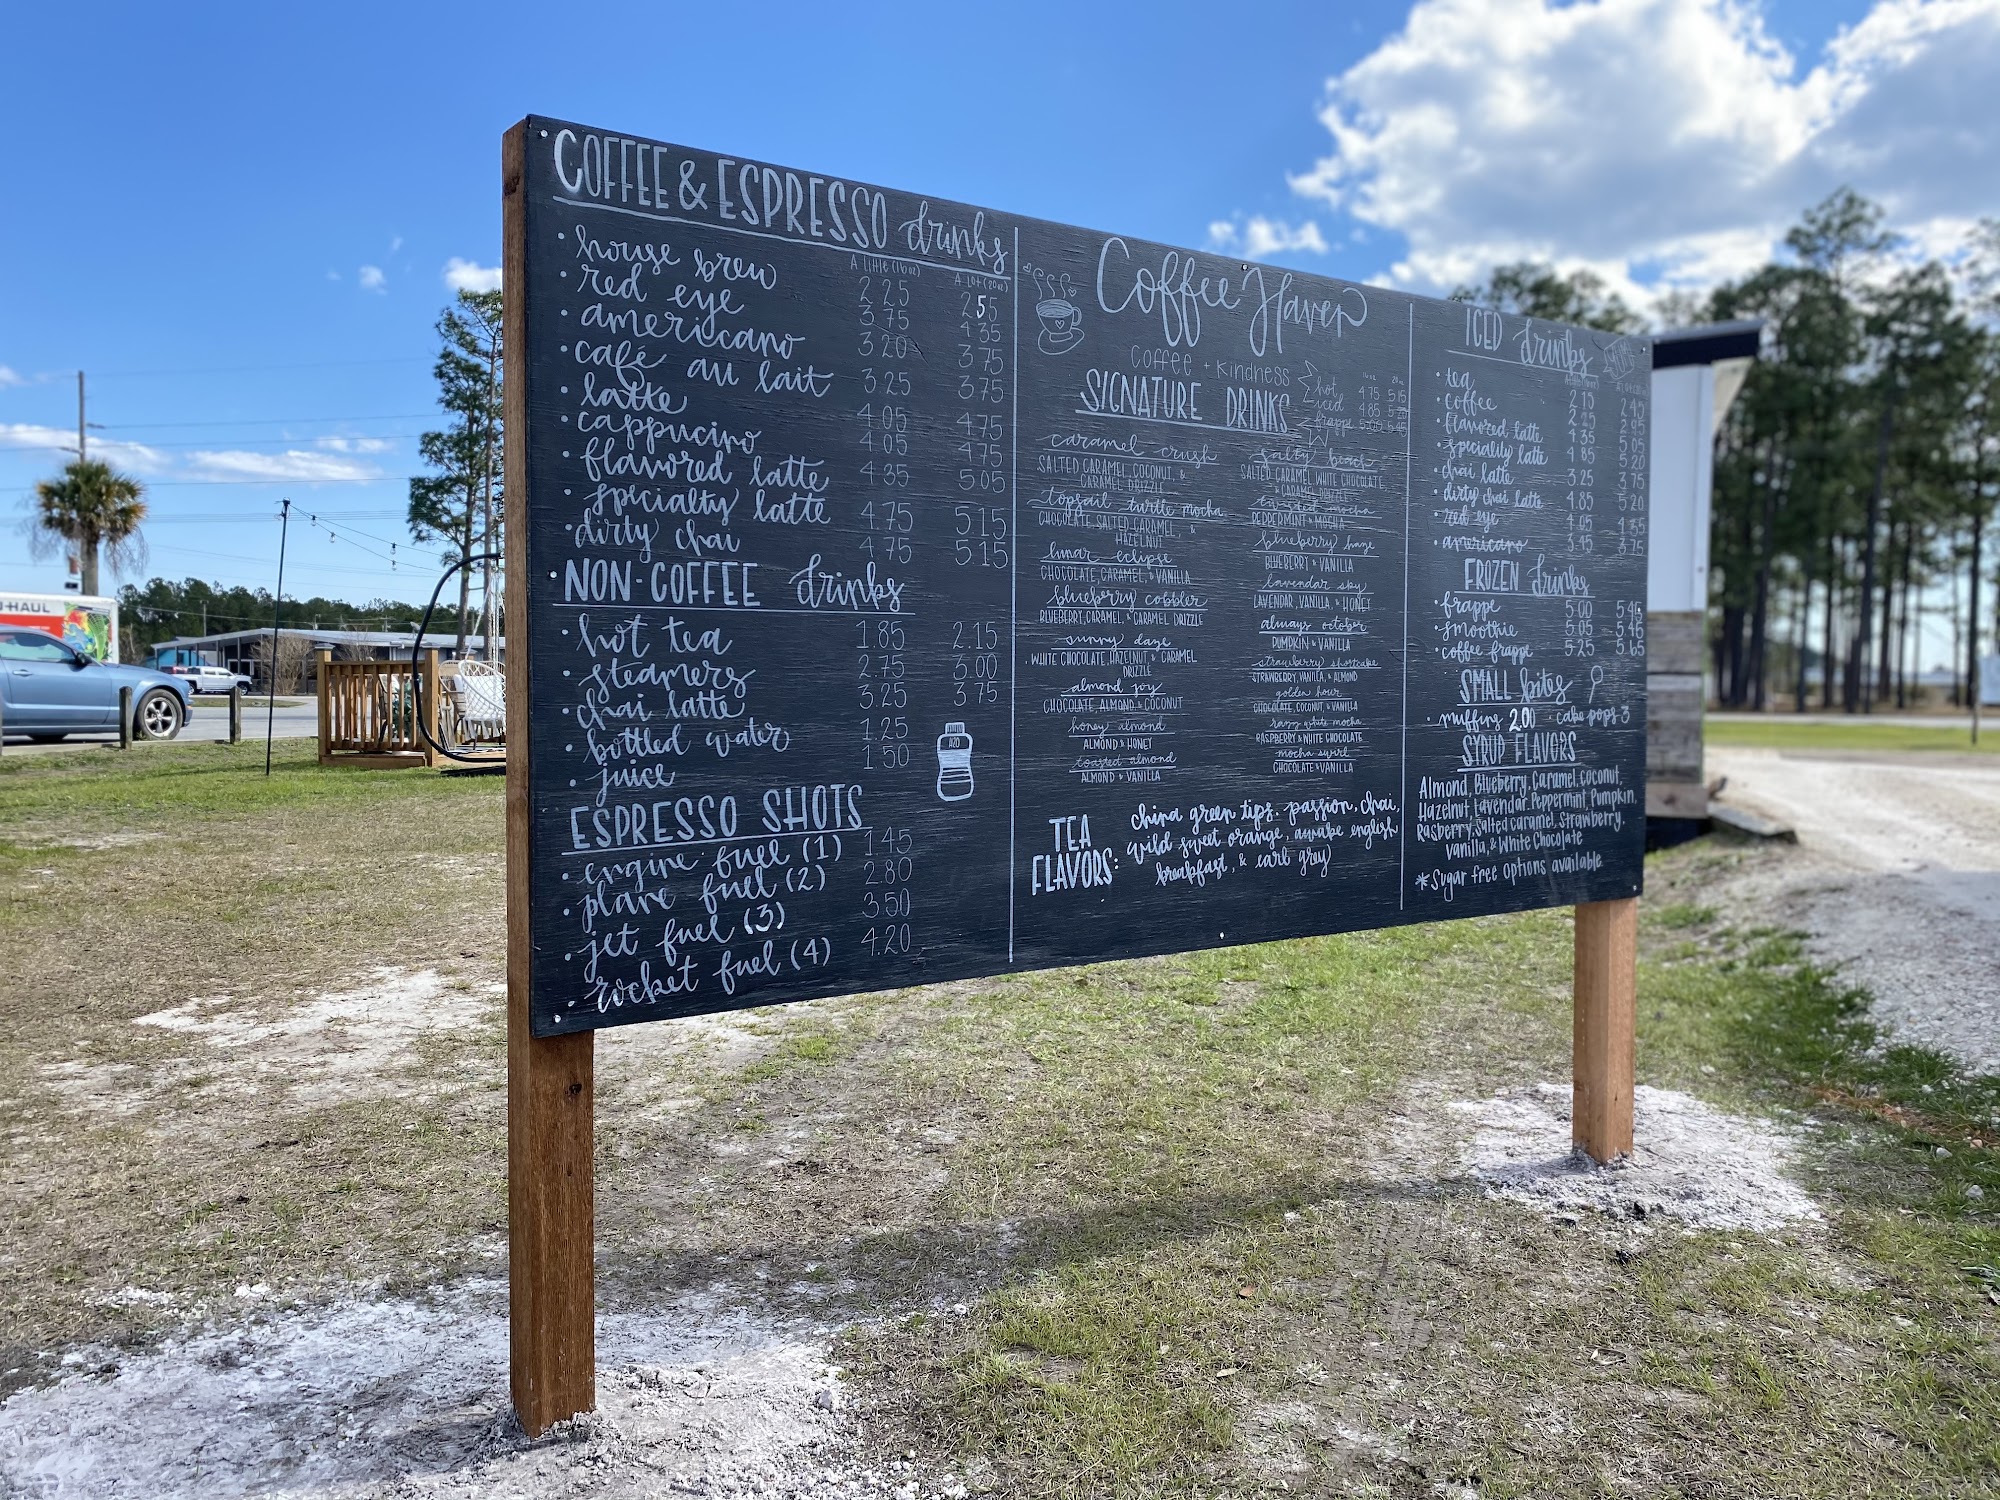 COFFEE & ESPRESSO drinks
A Little (16oz) A Lot (20oz)
• house brew 2.25 2.55
• red eye 3.75 4.35
• americano 3.20 3.75
• café au lait 3.25 3.75
• latte 4.05 4.75
• cappucino 4.05 4.75
• flavored latte 4.35 5.05
• specialty latte 4.75 5.15
• dirty chai 4.75 5.15
NON-COFFEE drinks
• hot tea 1.85 2.15
• steamers 2.75 3.00
• chai latte 3.25 3.75
• bottled water 1.25
• juice 1.50
H2O
ESPRESSO SHOTS
• engine fuel (1) 1.45
• plane fuel (2) 2.80
• jet fuel (3) 3.50
• rocket fuel (4) 4.20
Coffee Haven
coffee + kindness
SIGNATURE DRINKS
16oz 20oz
hot 4.75 5.15
iced 4.85 5.20
frappe 5.00 5.45
caramel crush
SALTED CARAMEL, COCONUT, &
CARAMEL DRIZZLE
topsail turtle mocha
CHOCOLATE, SALTED CARAMEL, &
HAZELNUT
lunar eclipse
CHOCOLATE, CARAMEL, & VANILLA
blueberry cobbler
BLUEBERRY, CARAMEL, & CARAMEL DRIZZLE
sunny daze
WHITE CHOCOLATE, HAZELNUT, & CARAMEL
DRIZZLE
almond joy
CHOCOLATE, ALMOND, & COCONUT
honey almond
ALMOND & HONEY
toasted almond
ALMOND & VANILLA
salty beach
SALTED CARAMEL, WHITE CHOCOLATE,
& CARAMEL DRIZZLE
mocha
PEPPERMINT & MOCHA
blueberry haze
BLUEBERRY & VANILLA
lavendar sky
LAVENDAR, VANILLA, & HONEY
always october
PUMPKIN & VANILLA
strawberry shortcake
STRAWBERRY, VANILLA, & ALMOND
golden hour
CHOCOLATE, COCONUT, & VANILLA
razzy white mocha
RASPBERRY & WHITE CHOCOLATE
mocha swirl
CHOCOLATE & VANILLA
TEA FLAVORS:
china green tips, passion, chai,
wild sweet orange, awake english
breakfast, & earl grey
ICED drinks
• tea 2.15 2.45
• coffee 2.25 2.95
• flavored latte 4.35 5.05
• speciality latte 4.85 5.20
• chai latte 3.25 3.75
• dirty chai latte 4.85 5.20
• red eye 4.05 4.35
• americano 3.45 3.75
FROZEN drinks
• frappe 5.00 5.45
• smoothie 5.05 5.45
• coffee frappe 5.25 5.65
SMALL bites
• muffins 2.00 • cake pops 3
SYRUP FLAVORS
Almond, Blueberry, Caramel, Coconut,
Hazelnut, Lavendar, Peppermint, Pumpkin,
Raspberry, Salted Caramel, Strawberry,
Vanilla, & White Chocolate
*Sugar free options available
U-HAUL